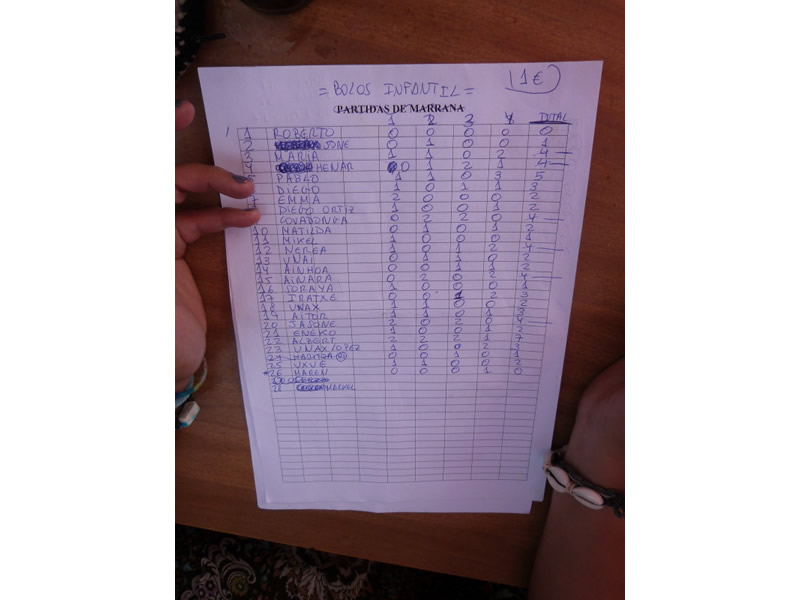 = BOLOS INFANTIL =
1€
PARTIDAS DE MARRANA
1 2 3 4 TOTAL
1 ROBERTO 0 0 0 0 0
2 JONE 0 0 0 1
3 MARIA 1 1 0 2 4
4 HENAR 0 1 2 1 4
PABLO 1 1 0 3 5
DIEGO 1 0 1 1 3
7 EMMA 2 0 0 0 2
DIEGO ORTIZ 1 0 0 1 2
COVADONGA 0 2 2 0 4
10 MATILDA 0 1 0 1 2
11 MIKEL 1 0 0 0 1
12 NEREA 1 0 1 2 4
13 UNAI 0 1 1 0 2
14 AINHOA 0 0 1 1 2
15 AINARA 0 2 0 2 4
16 SORAYA 1 0 0 0 1
17 IRATXE 0 0 1 2 3
18 UNAX 1 1 0 0 2
19 AITOR 1 1 0 1 3
20 JASONE 2 0 2 0 4
21 ENEKO 1 0 0 1 2
22 ALBERT 2 2 2 1 7
23 UNAX LOPEZ 1 0 0 2 3
24 0 0 1 0 1
25 UXUE 1 1 0 0 2
26 MAREN 0 0 0 1 0
28